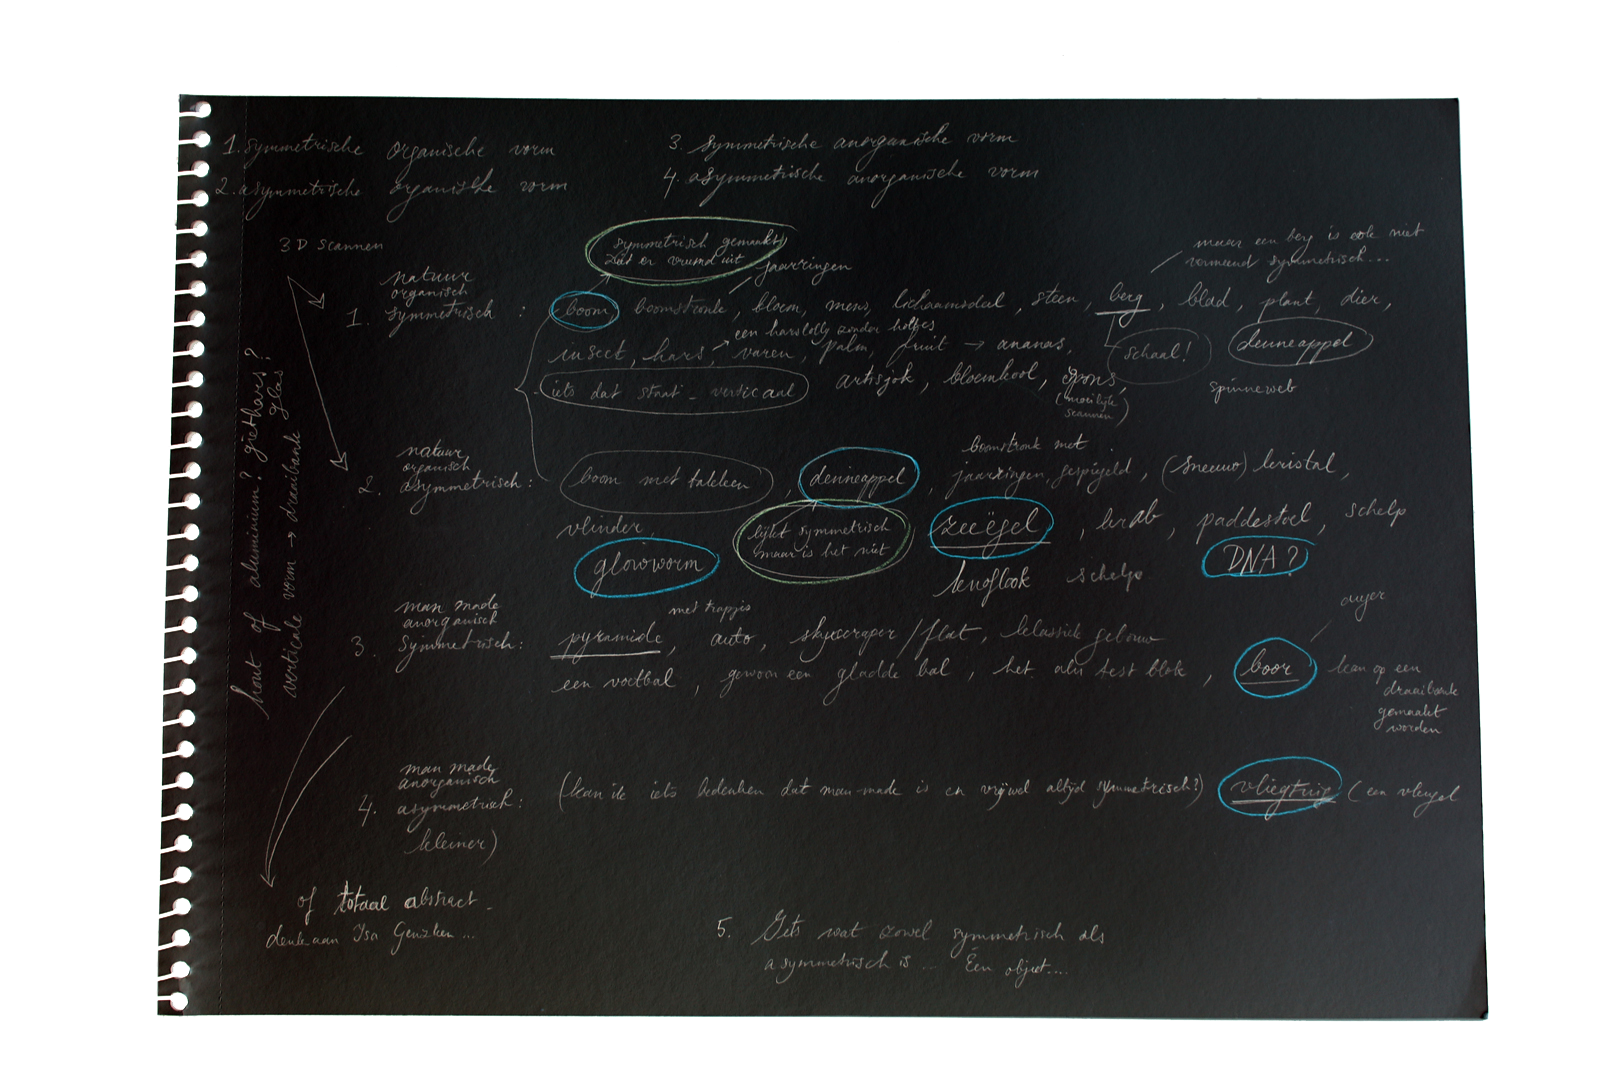 1. symmetrische organische vorm
2. asymmetrische organische vorm
3. symmetrische anorganische vorm
4. asymmetrische anorganische vorm
3D scannen
symmetrisch gemaakt
ziet er vreemd uit
jaarringen
maar een berg is ook niet
symmetrisch...
natuur
organisch
1. symmetrisch : boom, boomstronk, bloem, mens, lichaamsdeel, steen, berg, blad, plant, dier,
een harslolly zonder
insect, hars, varen, palm, fruit → ananas,
schaal!
denneappel
iets dat staat - verticaal
artisjok, bloemkool, spons,
(moeilijk
scannen)
spinneweb
natuur
organisch
2. asymmetrisch: boom met takken, denneappel,
boomstronk met
jaarringen, gespiegeld, (sneeuw) kristal,
vlinder,
lijkt symmetrisch
maar is het niet
zeeëgel, krab, paddestoel, schelp
glowworm
knoflook schelp
DNA?
man made
anorganisch
3. symmetrisch:
met trapjes
pyramide, auto, skyscraper/flat, klassiek gebouw
een voetbal, gewoon een gladde bal, het als test blok,
boor
kan op een
draaibank
gemaakt
worden
man made
anorganisch
4. asymmetrisch: (kan ik iets bedenken dat man-made is en vrijwel altijd symmetrisch?) vliegtuig (een vleugel
kleiner)
hout of aluminium? giethars?
verticale vorm → draaibank glas
of totaal abstract -
denk aan Isa Genzken...
5. Iets wat zowel symmetrisch als
asymmetrisch is... Één object....